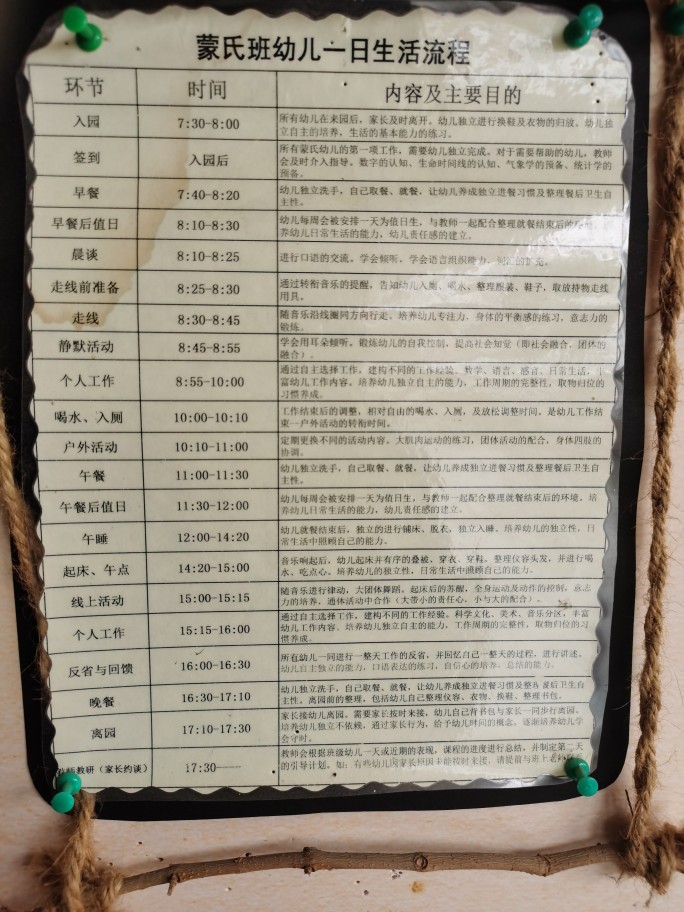 蒙氏班幼儿一日生活流程
环节 时间 内容及主要目的
入园 7:30-8:00 所有幼儿在来园后，家长及时离开。幼儿独立进行换鞋及衣物的归放。幼儿独
立自主的培养，生活的基本能力的练习。
签到 入园后 所有蒙氏幼儿的第一项工作，需要幼儿独立完成。对于需要帮助的幼儿，教师
会及时介入指导。数字的认知、生命时间线的认知、气象学的预备、统计学的
预备。
早餐 7:40-8:20 幼儿独立洗手，自己取餐、就餐，让幼儿养成独立进餐习惯及整理餐后卫生自
主性。
早餐后值日 8:10-8:30 幼儿每周会被安排一天为值日生，与教师一起配合整理就餐结束后的
养幼儿日常生活的能力，幼儿责任感的建立。
晨谈 8:10-8:25 进行口语的交流。学会倾听，学会语言组织能力、词汇的扩充。
走线前准备 8:25-8:30 通过转衔音乐的提醒，告知幼儿入厕、喝水、整理服装、鞋子，取放持物走线
用具。
走线 8:30-8:45 随音乐沿线圈同方向行走。培养幼儿专注力，身体的平衡感的练习，意志力的
锻炼。
静默活动 8:45-8:55 学会用耳朵倾听。锻炼幼儿的自我控制，提高社会知觉（即社会融合、团体的
融合）。
个人工作 8:55-10:00 通过自主选择工作，建构不同的工作经验。数学、语言、感官、日常生活，丰
富幼儿工作内容。培养幼儿独立自主的能力，工作周期的完整性，取物归位的
习惯养成。
喝水、入厕 10:00-10:10 工作结束后的调整，相对自由的喝水、入厕，及放松调整时间，是幼儿工作结
束一户外活动的转衔时间。
户外活动 10:10-11:00 定期更换不同的活动内容。大肌肉运动的练习，团体活动的配合，身体四肢的
协调。
午餐 11:00-11:30 幼儿独立洗手，自己取餐、就餐，让幼儿养成独立进餐习惯及整理餐后卫生自
主性。
午餐后值日 11:30-12:00 幼儿每周会被安排一天为值日生，与教师一起配合整理就餐结束后的环境。培
养幼儿日常生活的能力，幼儿责任感的建立。
午睡 12:00-14:20 幼儿就餐结束后，独立的进行铺床、脱衣，独立入睡。培养幼儿的独立性，日
常生活中照顾自己的能力。
起床、午点 14:20-15:00 音乐响起后，幼儿起床并有序的叠被、穿衣、穿鞋，整理仪容头发，并进行喝
水、吃点心。培养幼儿的独立性，日常生活中照顾自己的能力。
线上活动 15:00-15:15 随音乐进行律动，大团体舞蹈，起床后的苏醒，全身运动及动作的控制，意志
力的培养，通体活动中合作（大带小的责任心，小与大的配合）。
个人工作 15:15-16:00 通过自主选择工作，建构不同的工作经验。科学文化、美术、音乐分区，丰富
幼儿工作内容。培养幼儿独立自主的能力，工作周期的完整性，取物归位的习
惯养成。
反省与回馈 16:00-16:30 所有幼儿一同进行一整天工作的反省，并回忆自己一整天的过程，进行讲述。
幼儿自主独立的能力，口语表达的练习，自信心的培养，总结的能力。
晚餐 16:30-17:10 幼儿独立洗手，自己取餐、就餐，让幼儿养成独立进餐习惯及整理餐后卫生自
主性。离园前的整理，包括幼儿自己整理仪容、衣物、换鞋、整理书包。
离园 17:10-17:30 家长接幼儿离园。需要家长按时来接，幼儿自己背书包与家长一同步行离园。
培养幼儿独立不依赖。通过家长行为，给予幼儿时间的概念，逐渐培养幼儿学
会守时。
教师教研（家长约谈） 17:30—— 教师会根据班级幼儿一天或近期的表现，课程的进度进行总结，并制定第二天
的引导计划。如：有些幼儿因家长原因未能按时来接，请提前与班上老师